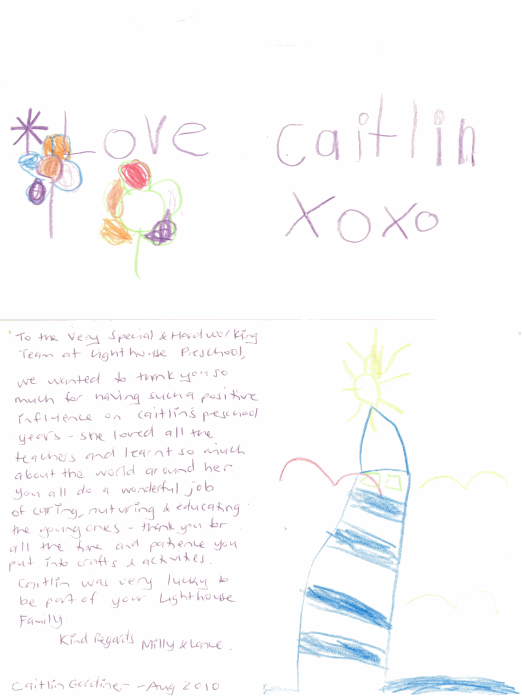 Love caitlin
xoxo
To the Very Special & Hardworking
Team at Lighthouse Preschool,
we wanted to thank you so
much for having such a positive
influence on Caitlin's preschool
years - she loved all the
teachers and learnt so much
about the world around her.
you all do a wonderful job
of caring, nurturing & educating
the young ones - thank you for
all the time and patience you
put into crafts & activities.
Caitlin was very lucky to
be part of your Lighthouse
Family.
Kind Regards Milly & Lance.
Caitlin Gardiner - Aug 2010